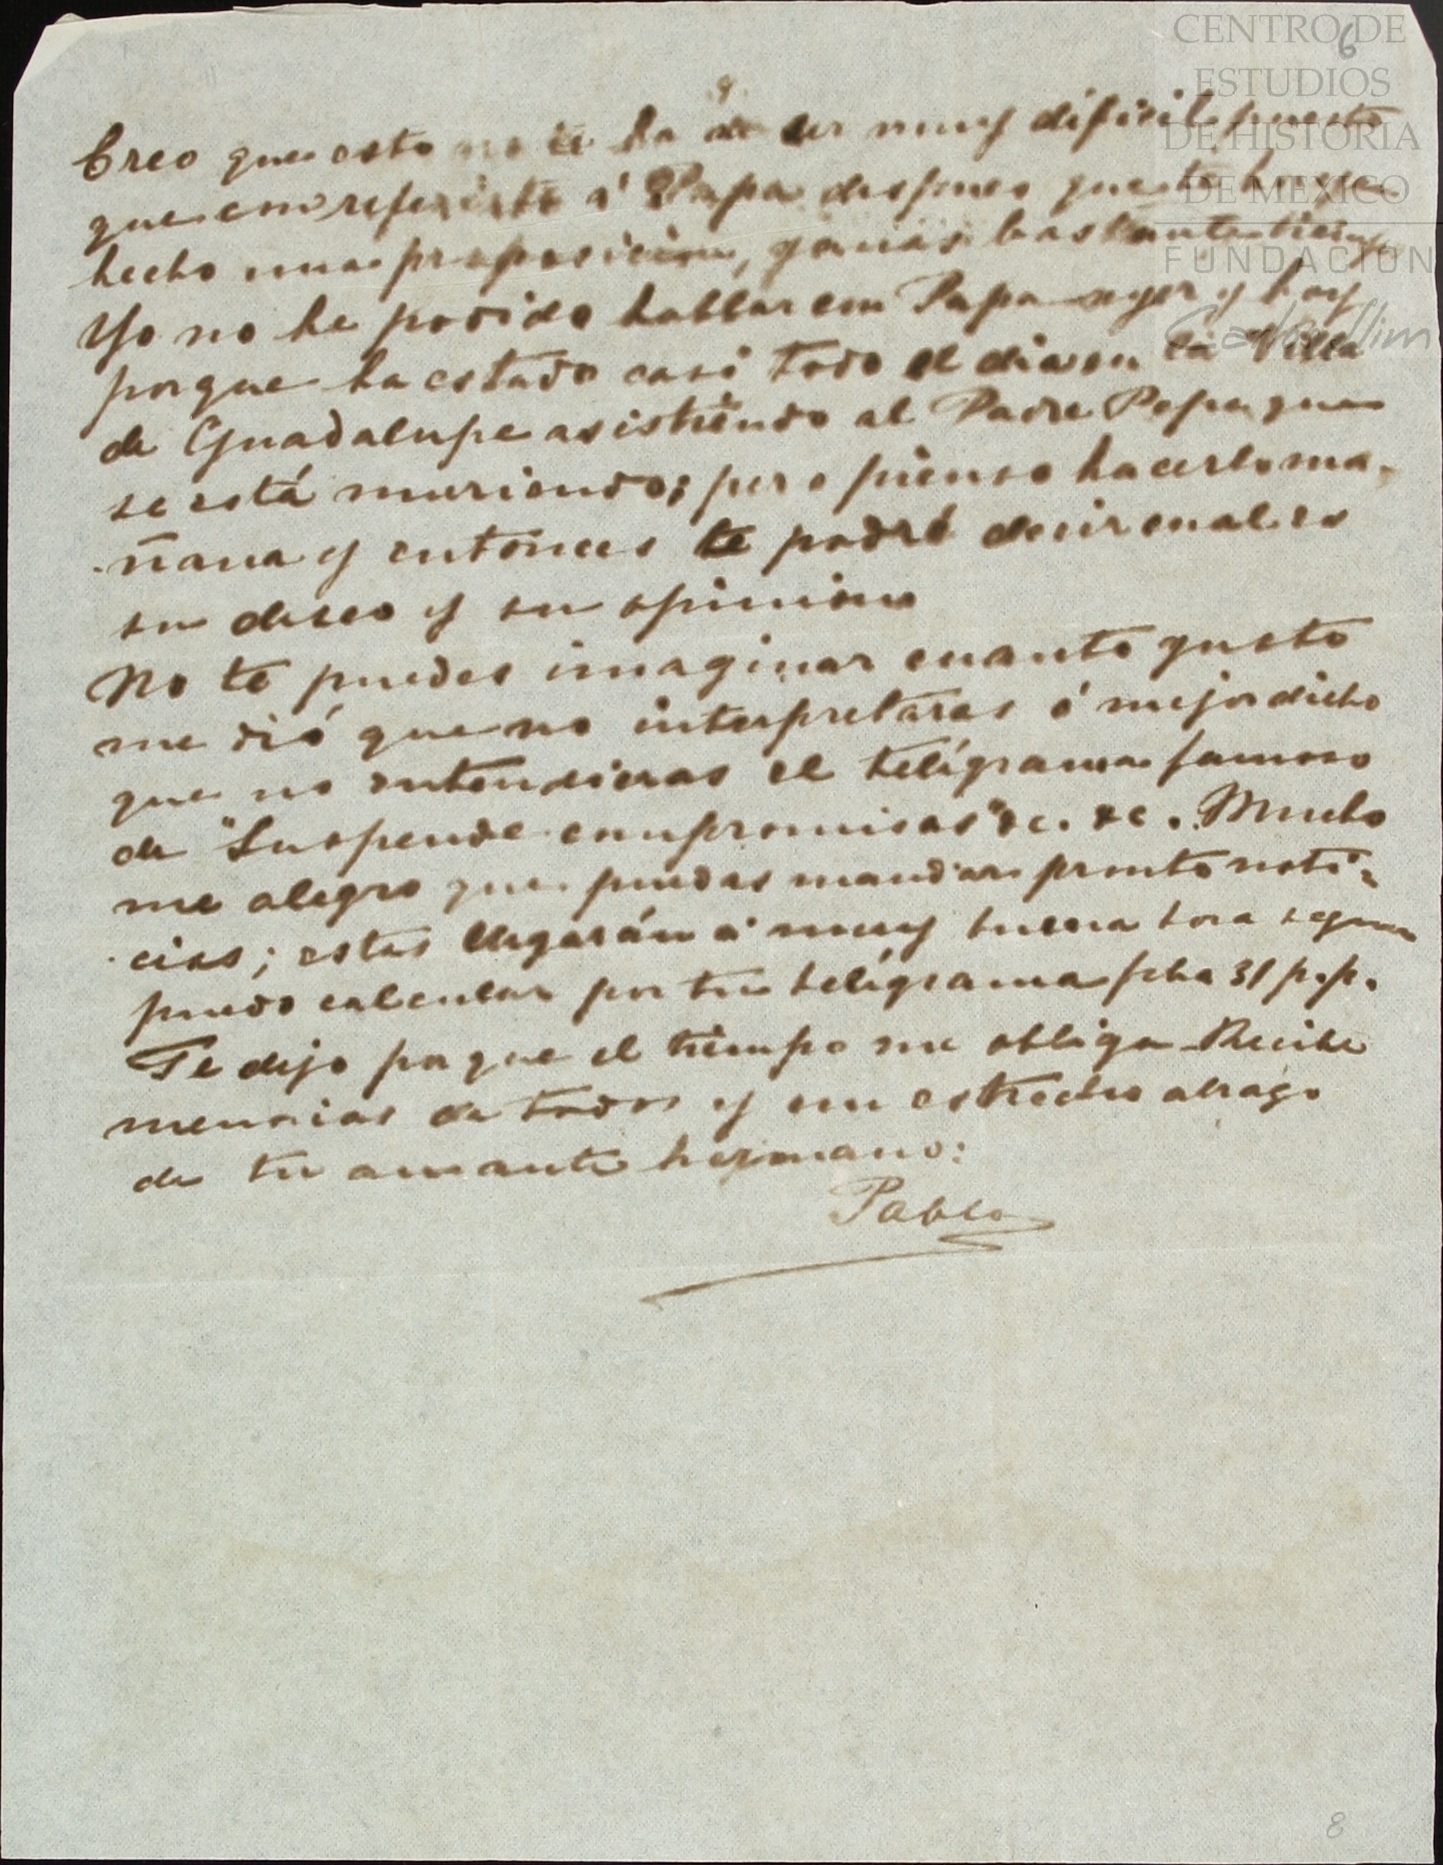 CENTRO DE
ESTUDIOS
DE HISTORIA
DE MEXICO
FUNDACION
6
9.
Creo que esto no te ha de ser muy dificil puesto
que con referirte á Papa despues que te haya
hecho una proposicion, ganas bastante tiempo
Yo no he podido hablar con Papa ayer y hoy
porque ha estado casi todo el dia en la Villa
de Guadalupe asistiendo al Padre Pepe que
se está muriendo; pero pienso hacerlo ma-
-ñana y entonces te podré decir cual es
su deseo y su opinion
No te puedes imaginar cuanto gusto
me dió que no interpretaras ó mejor dicho
que no entendieras el telégrama famoso
de "Suspende compromisos" &c. &c. Mucho
me alegro que puedas mandar pronto noti-
-cias; estas llegarán á muy buena hora segun
puedo calcular por tu telégrama fcha 31 p.p.
Te dejo porque el tiempo me obliga Recibe
memorias de todos y un estrecho abrazo
de tu amante hermano:
Pablo
8